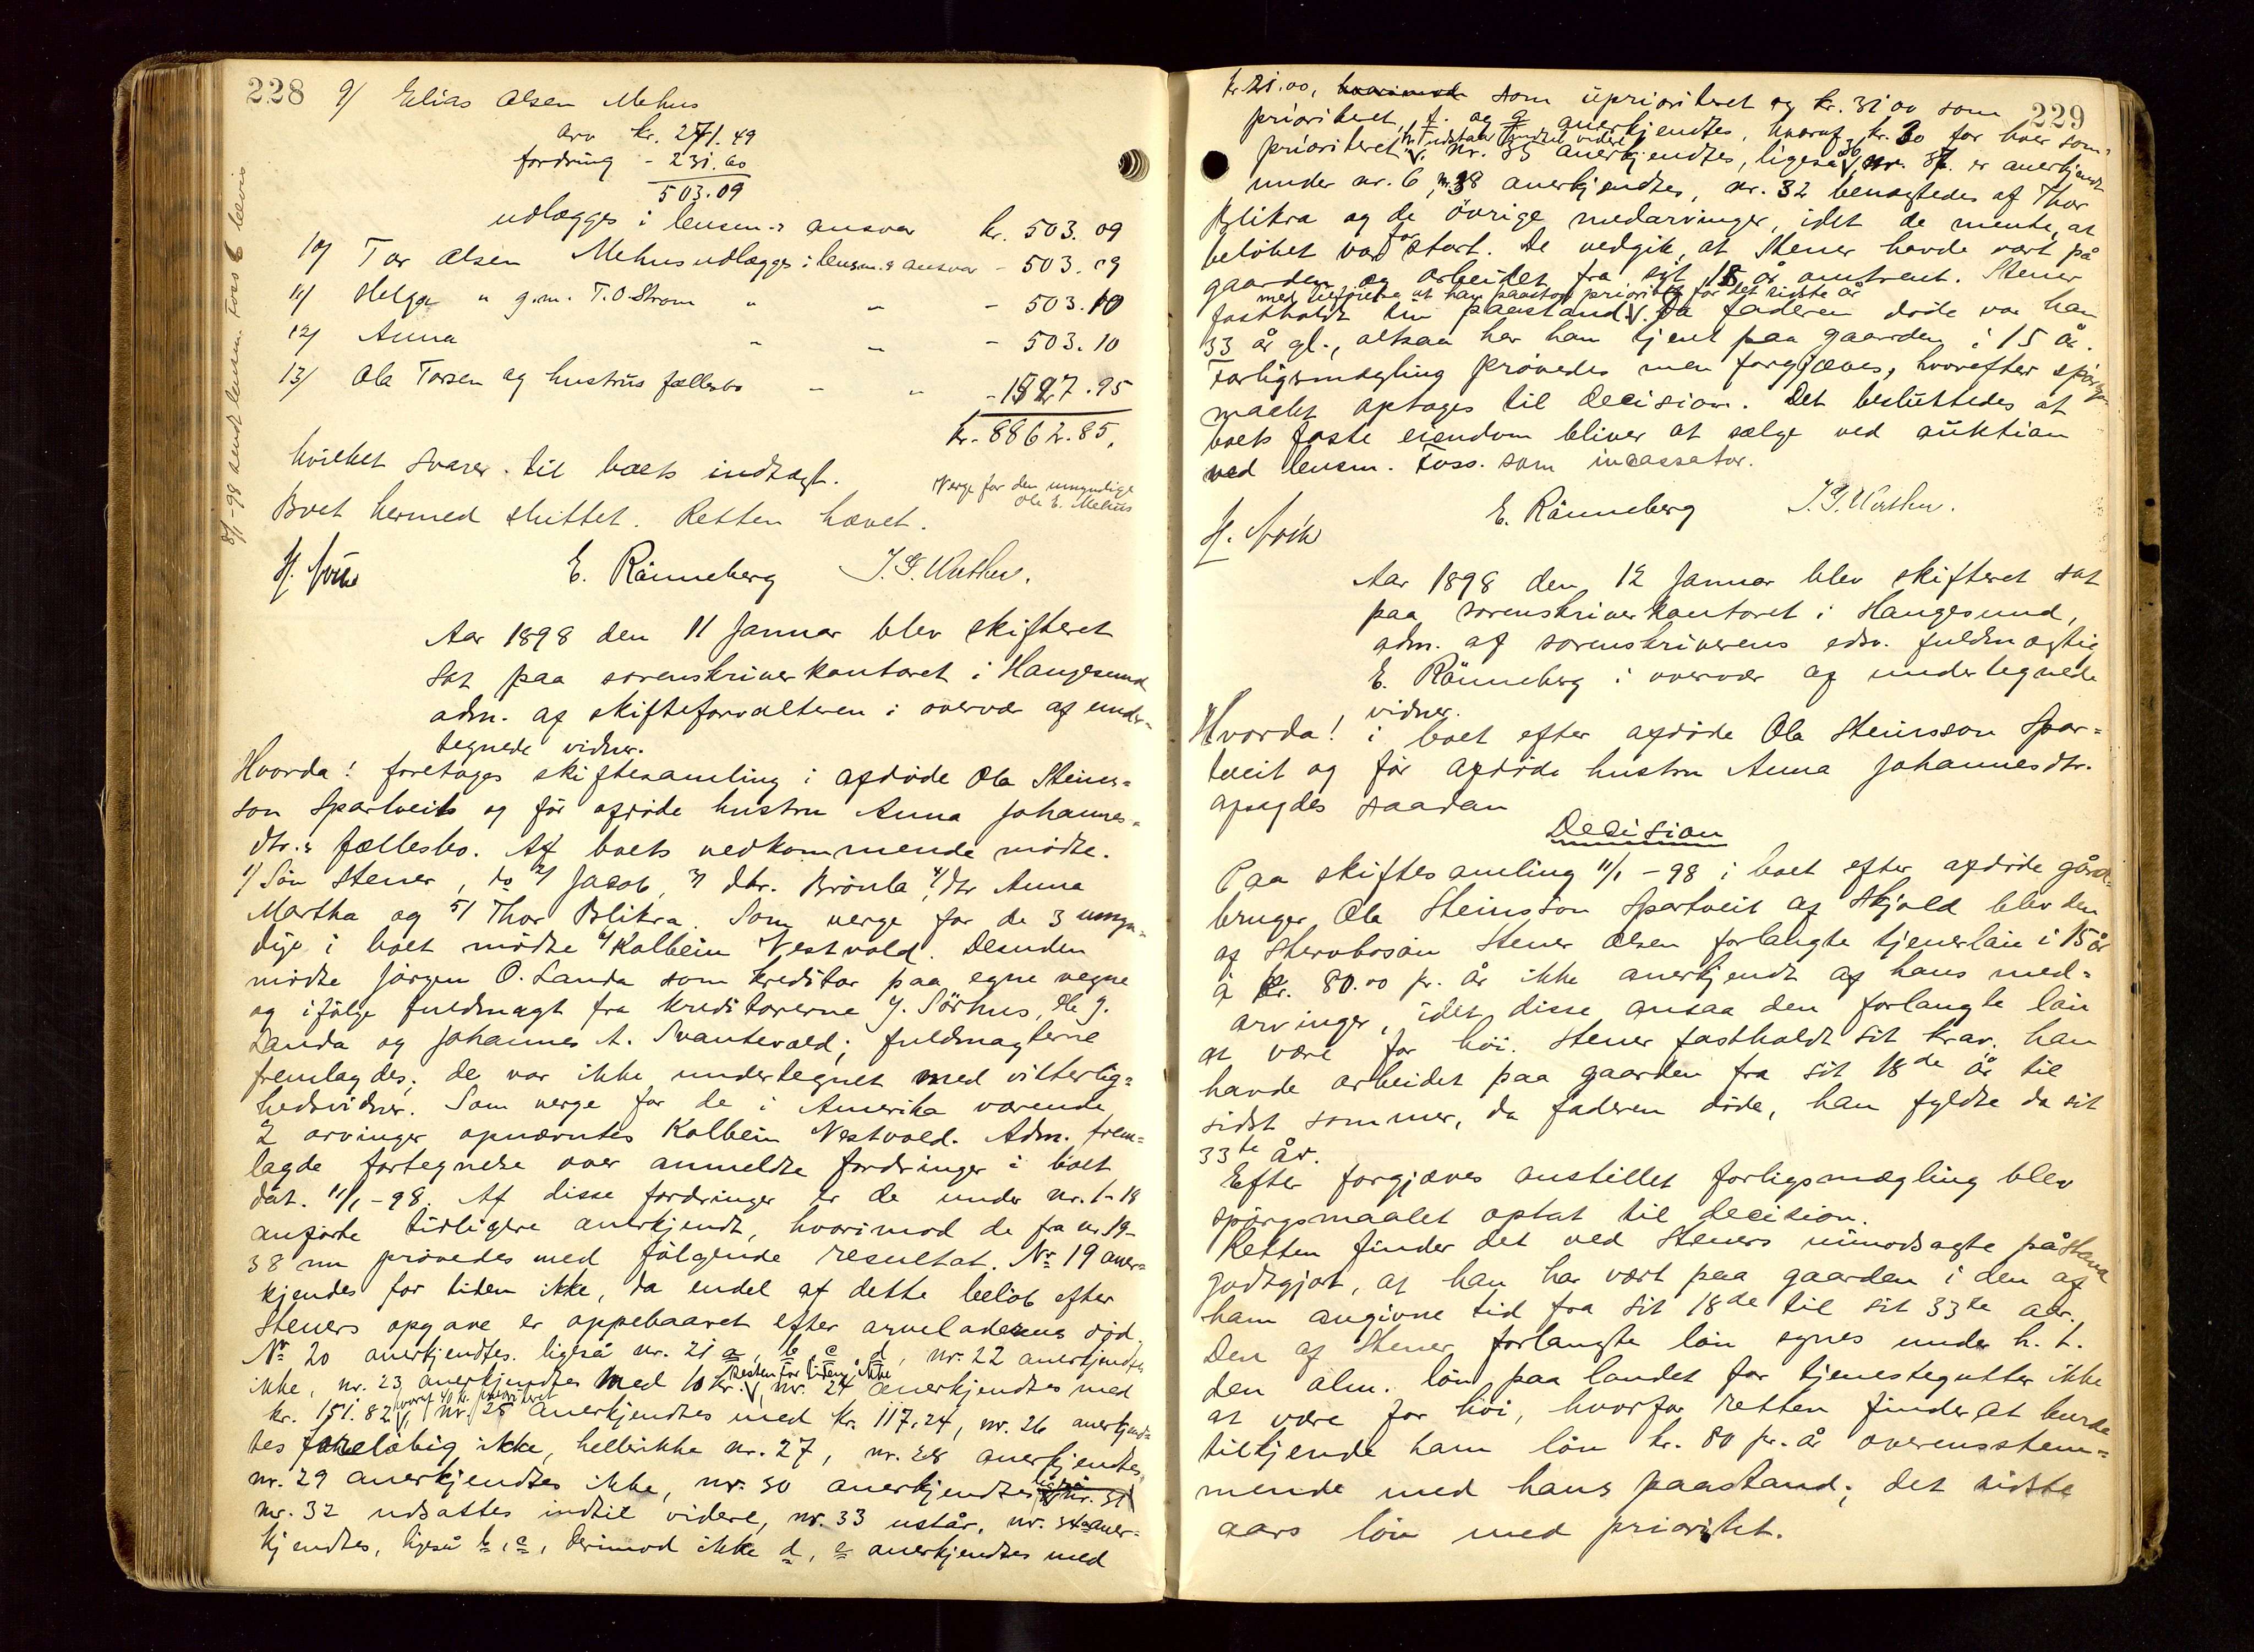 228
9/ Elias Olsen Mehus
arv kr. 271.49
fordring - 231.60
503.09
udlægges i lensm.s ansvar kr. 503.09
10/ Tor Olsen Mehus udlægges i lensm.s ansvar - 503.09
11/ Helga " g.m. T.O. Strom " " - 503.10
12/ Anna " " - 503.10
13/ Ola Torsen og hustrus fællesbo " " - 1527.95
kr. 8862.85.
hvilket svarer til boets indtægt.
Verge for den umyndige
Ole E. Mehus
Boet hermed sluttet. Retten hævet.
E. Rønneberg J.G. Wathne.
8/1-98 sendt lensm. Foss 6 bevis
Aar 1898 den 11 Januar blev skifteret
sat paa sorenskriverkontoret i Haugesund
adm. af skifteforvalteren i overvær af under-
tegnede vidner.
Hvorda! foretoges skiftesamling i afdøde Ola Steins-
son Spartveits og før afdøde hustru Anna Johannes-
dtr.s fællesbo. Af boets vedkommende mødte.
1/ Søn Stener, do 2/ Jacob, 3/ dtr. Brønla, 4/ dtr Anna
Martha og 5/ Thor Blikra. Som verge for de 3 umyn-
dige i boet mødte 6/ Kolbein Vestvold. Desuden
mødte Jørgen O. Landa som kreditor paa egne vegne
og ifølge fuldmagt fra kreditorerne J. Sørhus, Ole J.
Landa og Johannes A. Svantevold; fuldmagterne
fremlagdes; de var ikke undertegnet med vitterlig-
hedsvidner. Som verge for de i Amerika værende
2 arvinger opnævntes Kolbein Vestvold. Adm. frem-
lagde fortegnelse over anmeldte fordringer i boet
dat. 11/1-98. Af disse fordringer er de under nr. 1-18
anførte tidligere anerkjendt, hvorimod de fra nr. 19-
38 nu prøvedes med følgende resultat. No 19 aner-
kjendes for tiden ikke, da endel af dette beløb efter
Steners opgave er oppebaaret efter arveladerens død.
No 20 anerkjendtes. ligeså nr. 21 a, b, c, d, nr. 22 anerkjendtes
ikke, nr. 23 anerkjendtes med 10 kr. Resten for tiden ikke, nr. 24 anerkjendtes med
kr. 151.82, hvoraf 40 kr. prioriteret, nr. 25 anerkjendtes med kr. 117.24, nr. 26 anerkjend-
tes foreløbig ikke, hellerikke nr. 27, nr. 28 anerkjendtes,
nr. 29 anerkjendtes ikke, nr. 30 anerkjendtes ligeså nr. 31
nr. 32 udsattes indtil videre, nr. 33 udstår, nr. 34 a aner-
kjendtes, ligeså b, c, derimod ikke d, e anerkjendtes med
229
kr 21.00, hvorimod som uprioriteret og kr. 31.00 som
prioriteret, f. og g anerkjendtes, hvoraf kr. 30 for hver som
prioriteret, nr. 35 anerkjendtes, ligeså nr. 36 er anerkjendt
under nr. 6, nr. 38 anerkjendtes, nr. 32 benægtedes af Thor
Blikra og de øvrige medarvinger, idet de mente, at
beløbet var for stort. De vedgik, at Stener havde vært på
gaarden og arbeidet fra sit 18 år omtrent. Stener
med tilføielse at han paastod prioritet for det sidste år
fastholdt sin paastand. Da faderen døde var han
33 år gl., altsaa har han tjent paa gaarden i 15 år.
Forligsmægling prøvedes men forgjæves, hvorefter spørgs-
maalet optoges til decision. Det besluttedes at
boets faste eiendom bliver at sælge ved auktion
ved lensm. Foss. som incassator.
E. Rønneberg J.G. Wathne.
Aar 1898 den 12 Januar blev skifteret sat
paa sorenskriverkontoret i Haugesund,
adm. af sorenskriverens edsv. fuldmægtig
E. Rønneberg i overvær af undertegnede
vidner.
Hvorda! i boet efter afdøde Ola Steinsson Spar-
tveit og før afdøde hustru Anna Johannesdtr.
afsagdes saadan
Decision
Paa skiftesamling 11/1-98 i boet efter afdøde gård-
bruger Ola Steinsson Spartveit af Skjold blev den
af Stervbosøn Stener Olsen forlangte tjenerløn i 15 år
à kr. 80.00 pr. år ikke anerkjendt af hans med-
arvinger, idet disse ansaa den forlangte løn
at være for høi. Stener fastholdt sit krav. han
havde arbeidet paa gaarden fra sit 18de år til
sidst sommer, da faderen døde, han fyldte da sit
33te år.
Efter forgjæves anstillet forligsmægling blev
spørgsmaalet optat til decision.
Retten finder det ved Steners uimodsagte påstand
godtgjort, at han har vært paa gaarden i den af
ham angivne tid fra sit 18de til sit 33te aar.
Den af Stener forlangte løn synes under h. t.
den alm. løn paa landet for tjenestegutter ikke
at være for høi, hvorfor retten finder at burde
tilkjende ham løn kr. 80 pr. år overensstem-
mende med hans paastand; det sidste
aars løn med prioritet.